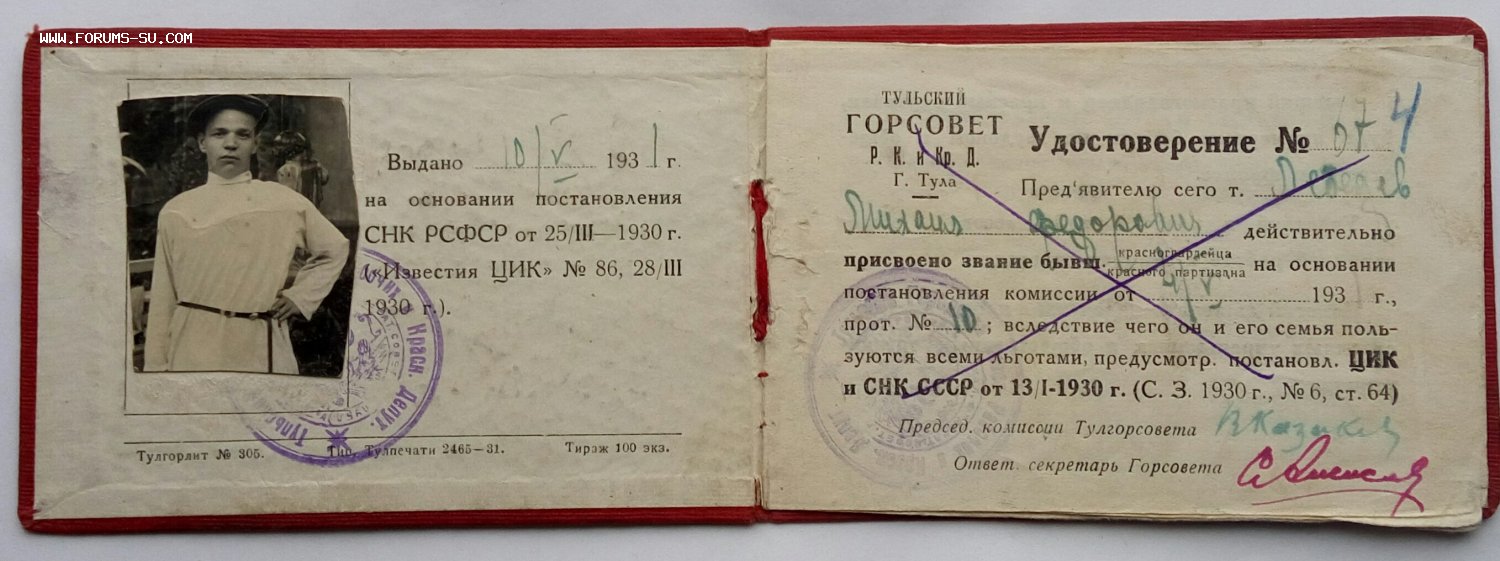 WWW.FORUMS-SU.COM
Выдано 10/V 1931 г.
на основании постановления
СНК РСФСР от 25/III—1930 г.
(«Известия ЦИК» № 86, 28/III
1930 г.).
Тулгорлит № 305. Тип. Тулпечати 2465-31. Тираж 100 экз.
ТУЛЬСКИЙ
ГОРСОВЕТ
Р. К. и Кр. Д.
Г. Тула
Удостоверение № 674
Пред'явителю сего т. Лебедев
Михаил Федорович действительно
присвоено звание бывш. красногвардейца
красного партизана на основании
постановления комиссии от 4/V 193 г.,
прот. № 10; вследствие чего он и его семья поль-
зуются всеми льготами, предусмотр. постановл. ЦИК
и СНК СССР от 13/I-1930 г. (С. З. 1930 г., № 6, ст. 64)
Председ. комиссии Тулгорсовета
Ответ. секретарь Горсовета
Красн. Депут.